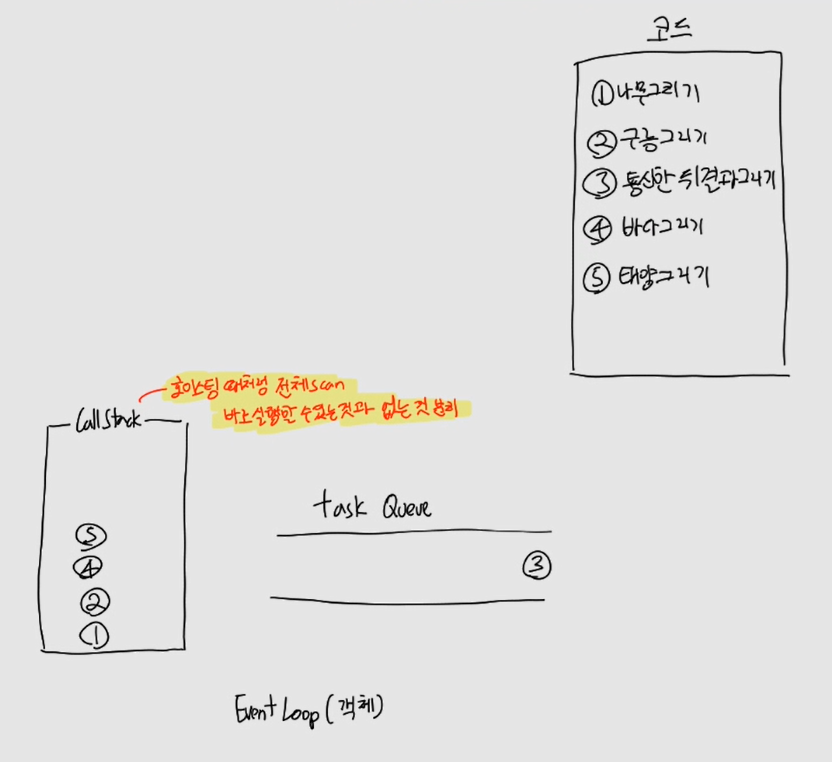 코드
① 나무그리기
② 구름그리기
③ 통신한 뒤 결과그리기
④ 바다그리기
⑤ 태양그리기
호이스팅 때처럼 전체 scan
바로 실행할 수 있는것과 없는 것 분리
Call Stack
⑤
④
②
①
task Queue
③
Event Loop (객체)